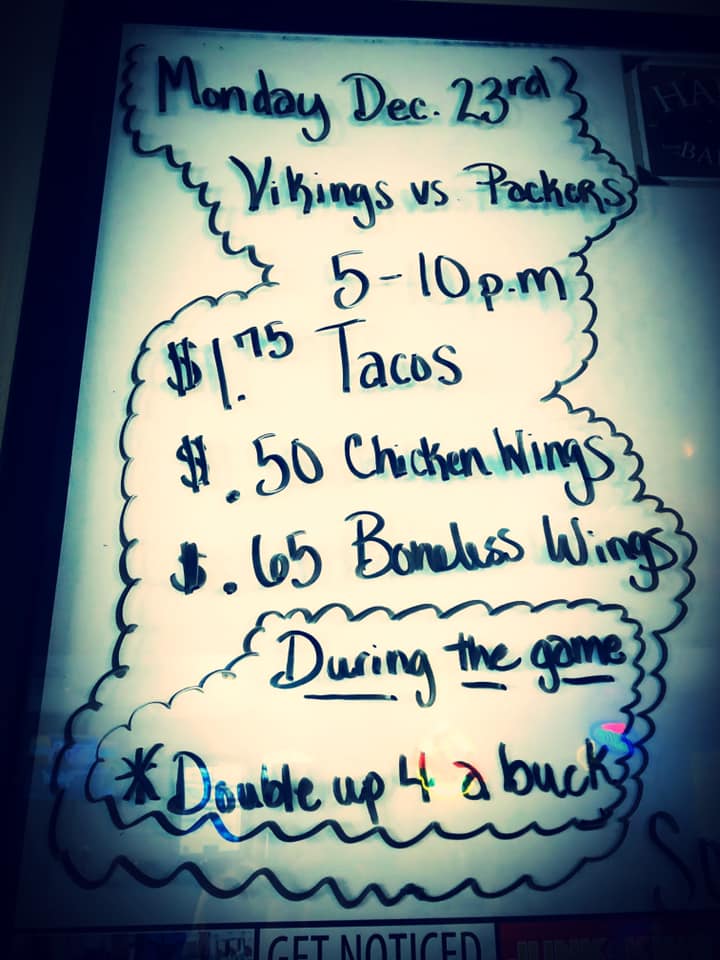 Monday Dec. 23rd
Vikings vs Packers
5-10p.m
$1.75 Tacos
$.50 Chicken Wings
$.65 Boneless Wings
During the game
*Double up 4 a buck
GET NOTICED